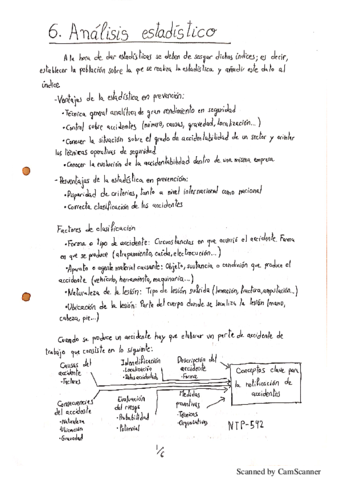 6. Análisis estadístico
A la hora de dar estadísticas se deben de sesgar dichos índices; es decir,
establecer la población sobre la que se realiza la estadística y añadir este dato al
índice.
-Ventajas de la estadística en prevención:
•Técnica general analítica de gran rendimiento en seguridad
•Control sobre accidentes (número, causas, gravedad, localización...)
•Conocer la situación sobre el grado de accidentabilidad de un sector y orientar
las técnicas operativas de seguridad
•Conocer la evolución de la accidentabilidad dentro de una misma empresa
-Desventajas de la estadística en prevención:
•Disparidad de criterios, tanto a nivel internacional como nacional
•Correcta clasificación de los accidentes
Factores de clasificación
•Forma o tipo de accidente: Circunstancias en que ocurrió el accidente. Forma
en que se produce (atrapamiento, caída, electrocución...)
•Aparato o agente material causante: Objeto, sustancia o condición que produce el
accidente (vehículo, herramienta, maquinaria...)
•Naturaleza de la lesión: Tipo de lesión sufrida (luxación, fractura, amputación...)
•Ubicación de la lesión: Parte del cuerpo donde se localiza la lesión (mano,
cabeza, pie...)
Cuando se produce un accidente hay que elaborar un parte de accidente de
trabajo que consiste en lo siguiente:
Causas del
accidente
•Factores
Identificación
•Localización
•Datos accidentado
Descripción del
accidente
•Forma
Conceptos clave por
la notificación de
accidentes
Consecuencias
del accidente
•Naturaleza
•Ubicación
•Gravedad
Evaluación
del riesgo
•Probabilidad
•Potencial
Medidas
preventivas
•Técnicas
•Organizativas
NTP-592
1/6
Scanned by CamScanner